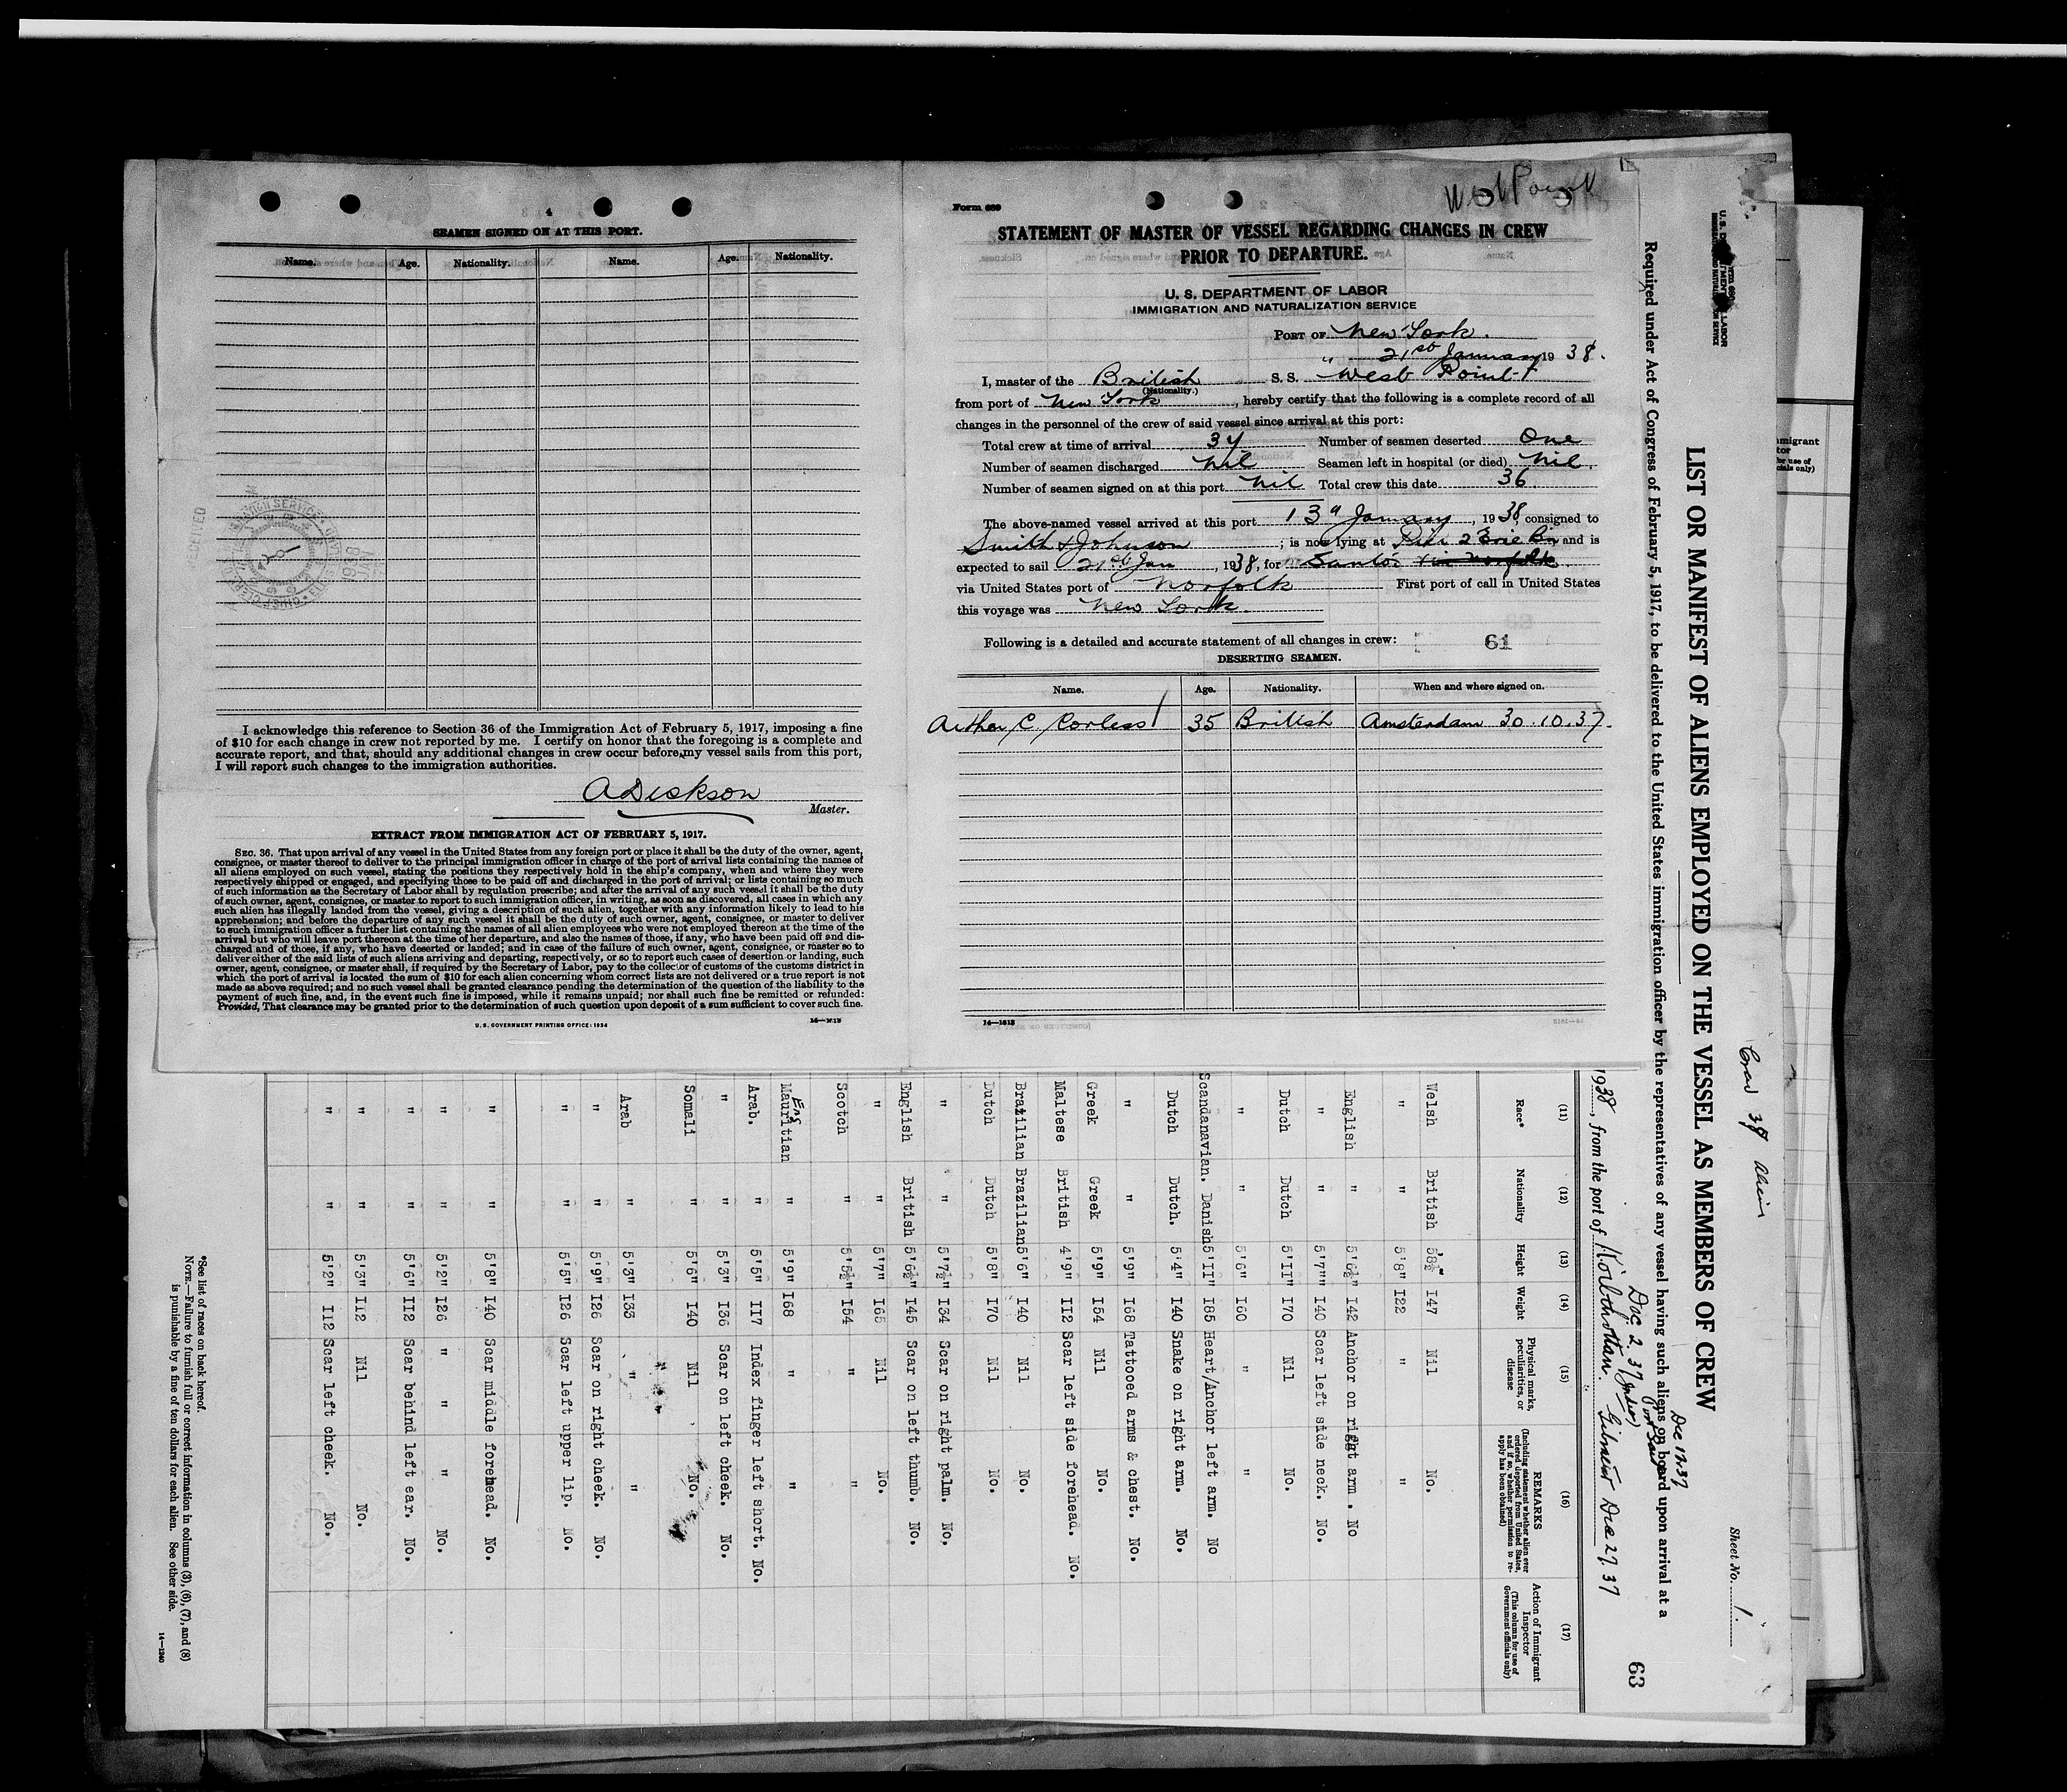 4
SEAMEN SIGNED ON AT THIS PORT.
Name. Age. Nationality. Name. Age. Nationality.
I acknowledge this reference to Section 36 of the Immigration Act of February 5, 1917, imposing a fine
of $10 for each change in crew not reported by me. I certify on honor that the foregoing is a complete and
accurate report, and that, should any additional changes in crew occur before my vessel sails from this port,
I will report such changes to the immigration authorities.
A Dickson
Master.
EXTRACT FROM IMMIGRATION ACT OF FEBRUARY 5, 1917.
SEC. 36. That upon arrival of any vessel in the United States from any foreign port or place it shall be the duty of the owner, agent,
consignee, or master thereof to deliver to the principal immigration officer in charge of the port of arrival lists containing the names of
all aliens employed on such vessel, stating the positions they respectively hold in the ship's company, when and where they were
respectively shipped or engaged, and specifying those to be paid off and discharged in the port of arrival; or lists containing so much
of such information as the Secretary of Labor shall by regulation prescribe; and after the arrival of any such vessel it shall be the duty
of such owner, agent, consignee, or master to report to such immigration officer, in writing, as soon as discovered, all cases in which any
such alien has illegally landed from the vessel, giving a description of such alien, together with any information likely to lead to his
apprehension; and before the departure of any such vessel it shall be the duty of such owner, agent, consignee, or master to deliver
to such immigration officer a further list containing the names of all alien employees who were not employed thereon at the time of the
arrival but who will leave port thereon at the time of her departure, and also the names of those, if any, who have been paid off and dis-
charged and of those, if any, who have deserted or landed; and in case of the failure of such owner, agent, consignee, or master so to
deliver either of the said lists of such aliens arriving and departing, respectively, or so to report such cases of desertion or landing, such
owner, agent, consignee, or master shall, if required by the Secretary of Labor, pay to the collector of customs of the customs district in
which the port of arrival is located the sum of $10 for each alien concerning whom correct lists are not delivered or a true report is not
made as above required; and no such vessel shall be granted clearance pending the determination of the question of the liability to the
payment of such fine, and, in the event such fine is imposed, while it remains unpaid; nor shall such fine be remitted or refunded:
Provided, That clearance may be granted prior to the determination of such question upon deposit of a sum sufficient to cover such fine.
U. S. GOVERNMENT PRINTING OFFICE: 1934
West Point
Form 689
STATEMENT OF MASTER OF VESSEL REGARDING CHANGES IN CREW
PRIOR TO DEPARTURE.
U. S. DEPARTMENT OF LABOR
IMMIGRATION AND NATURALIZATION SERVICE
PORT OF New York.
21st January 1938.
I, master of the British S. S. West Point
(Nationality.)
from port of New York, hereby certify that the following is a complete record of all
changes in the personnel of the crew of said vessel since arrival at this port:
Total crew at time of arrival 37 Number of seamen deserted One
Number of seamen discharged Nil Seamen left in hospital (or died) Nil.
Number of seamen signed on at this port Nil Total crew this date 36
The above-named vessel arrived at this port 13th January, 1938, consigned to
Smith & Johnson; is now lying at Pier 2 Erie Bn and is
expected to sail 21st Jan, 1938, for Santos via Norfolk.
via United States port of Norfolk First port of call in United States
this voyage was New York.
Following is a detailed and accurate statement of all changes in crew:
61
DESERTING SEAMEN.
Name. Age. Nationality. When and where signed on.
Arthur C. Corless 35 British Amsterdam 30.10.37.
14—1813
Sheet No. 1.
LIST OR MANIFEST OF ALIENS EMPLOYED ON THE VESSEL AS MEMBERS OF CREW
Required under Act of Congress of February 5, 1917, to be delivered to the United States immigration officer by the representatives of any vessel having such aliens on board upon arrival at a
Dec 17.37
Dec. 2. 37
1938, from the port of Dec 27. 37
63
(11) (12) (13) (14) (15) (16) (17)
Race* Nationality Height Weight Physical marks, peculiarities, or disease REMARKS (Including statement whether alien ever ordered deported from United States, and if so, whether permission to re-apply has been obtained) Action of Immigrant Inspector (This column for use of Government officials only)
Welsh British 5'8½" 147 Nil No.
" " 5'8" I22 " "
English " 5'6½" I42 Anchor on right arm. No
" " 5'7" I40 Scar left side neck. No.
Dutch Dutch 5'II" I70 Nil No.
" " 5'6" I60 " "
Scandanavian. Danish 5'II" I85 Heart/Anchor left arm. No
Dutch Dutch. 5'4" I40 Snake on right arm. No.
" " 5'9" I68 Tattooed arms & chest. No.
Greek Greek 5'9" I54 Nil No.
Maltese British 4'9" II2 Scar left side forehead. No.
Brazilian Brazilian 5'6" I40 Nil No.
Dutch Dutch 5'8" I70 Nil No.
" " 5'7½" I34 Scar on right palm. No.
English British 5'6½" I45 Scar on left thumb. No.
" " 5'7" I65 Nil No.
Scotch " 5'5½" I54 " "
Eng
Mauritian " 5'9" I68 " "
Arab. " 5'5" II7 Index finger left short. No.
" " 5'3" I36 Scar on left cheek. No.
Somali " 5'6" I40 Nil No.
Arab " 5'3" I33 " "
" " 5'9" I26 Scar on right cheek. No.
" " 5'5" I26 Scar left upper lip. No.
" " 5'8" I40 Scar middle forehead. No.
" " 5'2" I26 " " " No.
" " 5'6" II2 Scar behind left ear. No.
" " 5'3" II2 Nil No.
" " 5'2" II2 Scar left cheek. No.
*See list of races on back hereof.
NOTE.—Failure to furnish full or correct information in columns (3), (6), (7), and (8)
is punishable by a fine of ten dollars for each alien. See other side.
14—1240